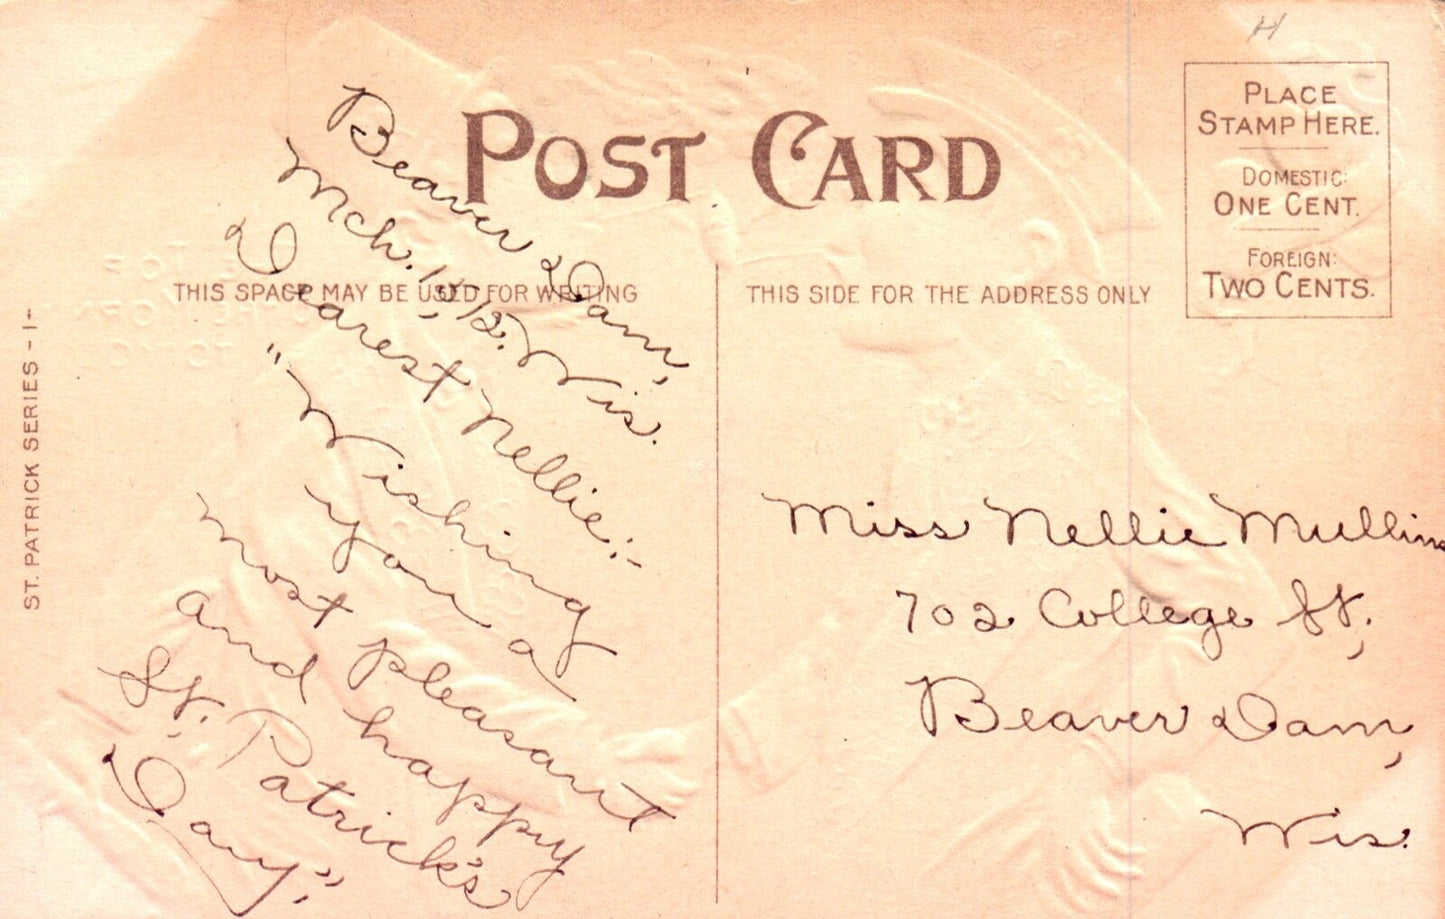 H
POST CARD
PLACE
STAMP HERE.
DOMESTIC:
ONE CENT.
FOREIGN:
TWO CENTS.
THIS SPACE MAY BE USED FOR WRITING
THIS SIDE FOR THE ADDRESS ONLY
ST. PATRICK SERIES - 1 -
Beaver Dam,
Mch. 15, '12. Wis.
Dearest Nellie:-
"Wishing
you a
most pleasant
and happy
St. Patrick's
Day",
Miss Nellie Mullins
702 College St,
Beaver Dam,
Wis.